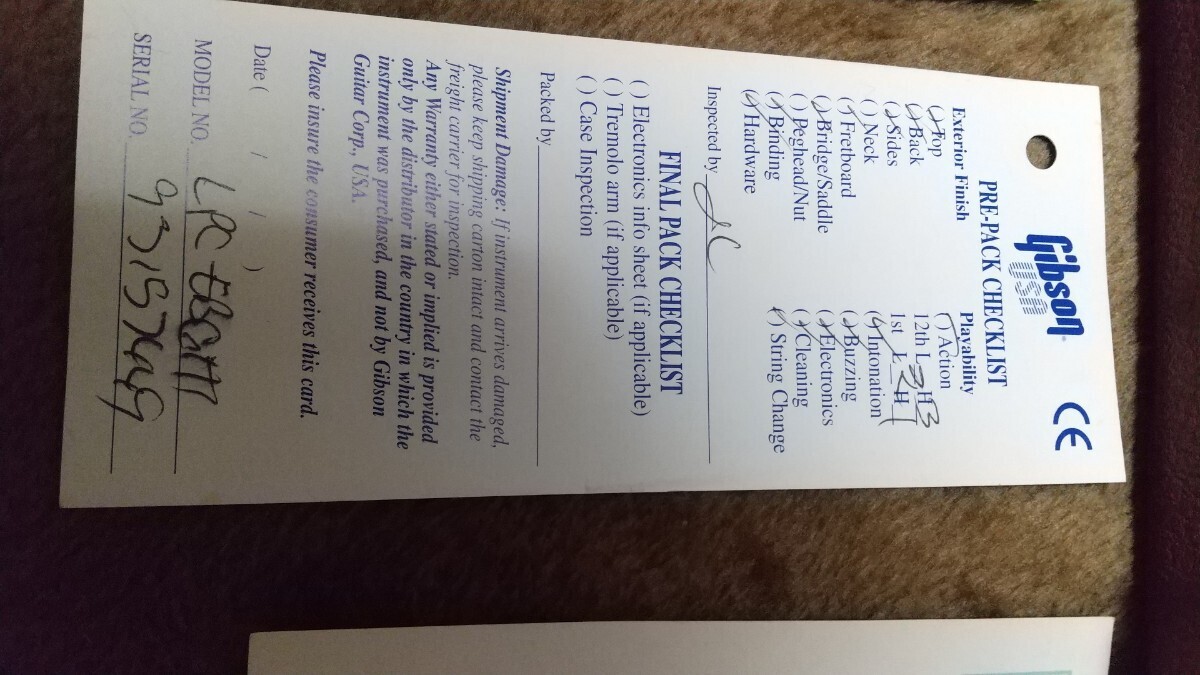 Gibson
USA
CE
PRE-PACK CHECKLIST
Exterior Finish
( ) Top
( ) Back
( ) Sides
( ) Neck
( ) Fretboard
( ) Bridge/Saddle
( ) Peghead/Nut
( ) Binding
( ) Hardware
Playability
( ) Action
12th L H
1st L H
( ) Intonation
( ) Buzzing
( ) Electronics
( ) Cleaning
( ) String Change
Inspected by
FINAL PACK CHECKLIST
( ) Electronics info sheet (if applicable)
( ) Tremolo arm (if applicable)
( ) Case Inspection
Packed by
Shipment Damage: If instrument arrives damaged,
please keep shipping carton intact and contact the
freight carrier for inspection.
Any Warranty either stated or implied is provided
only by the distributor in the country in which the
instrument was purchased, and not by Gibson
Guitar Corp., USA.
Please insure the consumer receives this card.
Date ( / / )
MODEL NO. LPC
SERIAL NO.